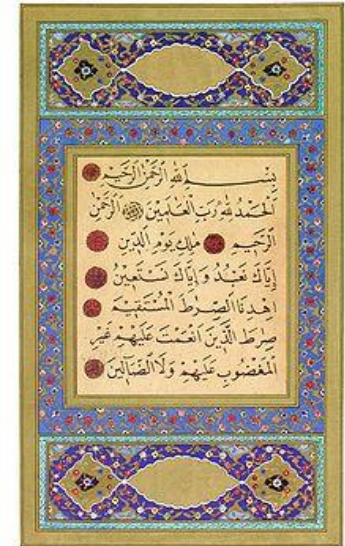 بِسْمِ اللهِ الرَّحْمٰنِ الرَّحِيمِ
اَلْحَمْدُ لِلهِ رَبِّ الْعَالَمِينَ الرَّحْمٰنِ
الرَّحِيمِ مَالِكِ يَوْمِ الدِّينِ
اِيَّاكَ نَعْبُدُ وَاِيَّاكَ نَسْتَعِينُ
اِهْدِنَا الصِّرَاطَ الْمُسْتَقِيمَ
صِرَاطَ الَّذِينَ اَنْعَمْتَ عَلَيْهِمْ غَيْرِ
الْمَغْضُوبِ عَلَيْهِمْ وَلَا الضَّالِّينَ